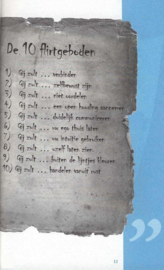 De 10 flirtgeboden
1) Gij zult ... verbinden
2) Gij zult ... zelfbewust zijn
3) Gij zult ... niet oordelen
4) Gij zult ... een open houding aannemen
5) Gij zult ... duidelijk communiceren
6) Gij zult ... uw ego thuis laten
7) Gij zult ... uw intuïtie gebruiken
8) Gij zult ... uzelf laten zien
9) Gij zult ... buiten de lijntjes kleuren
10) Gij zult ... handelen vanuit rust